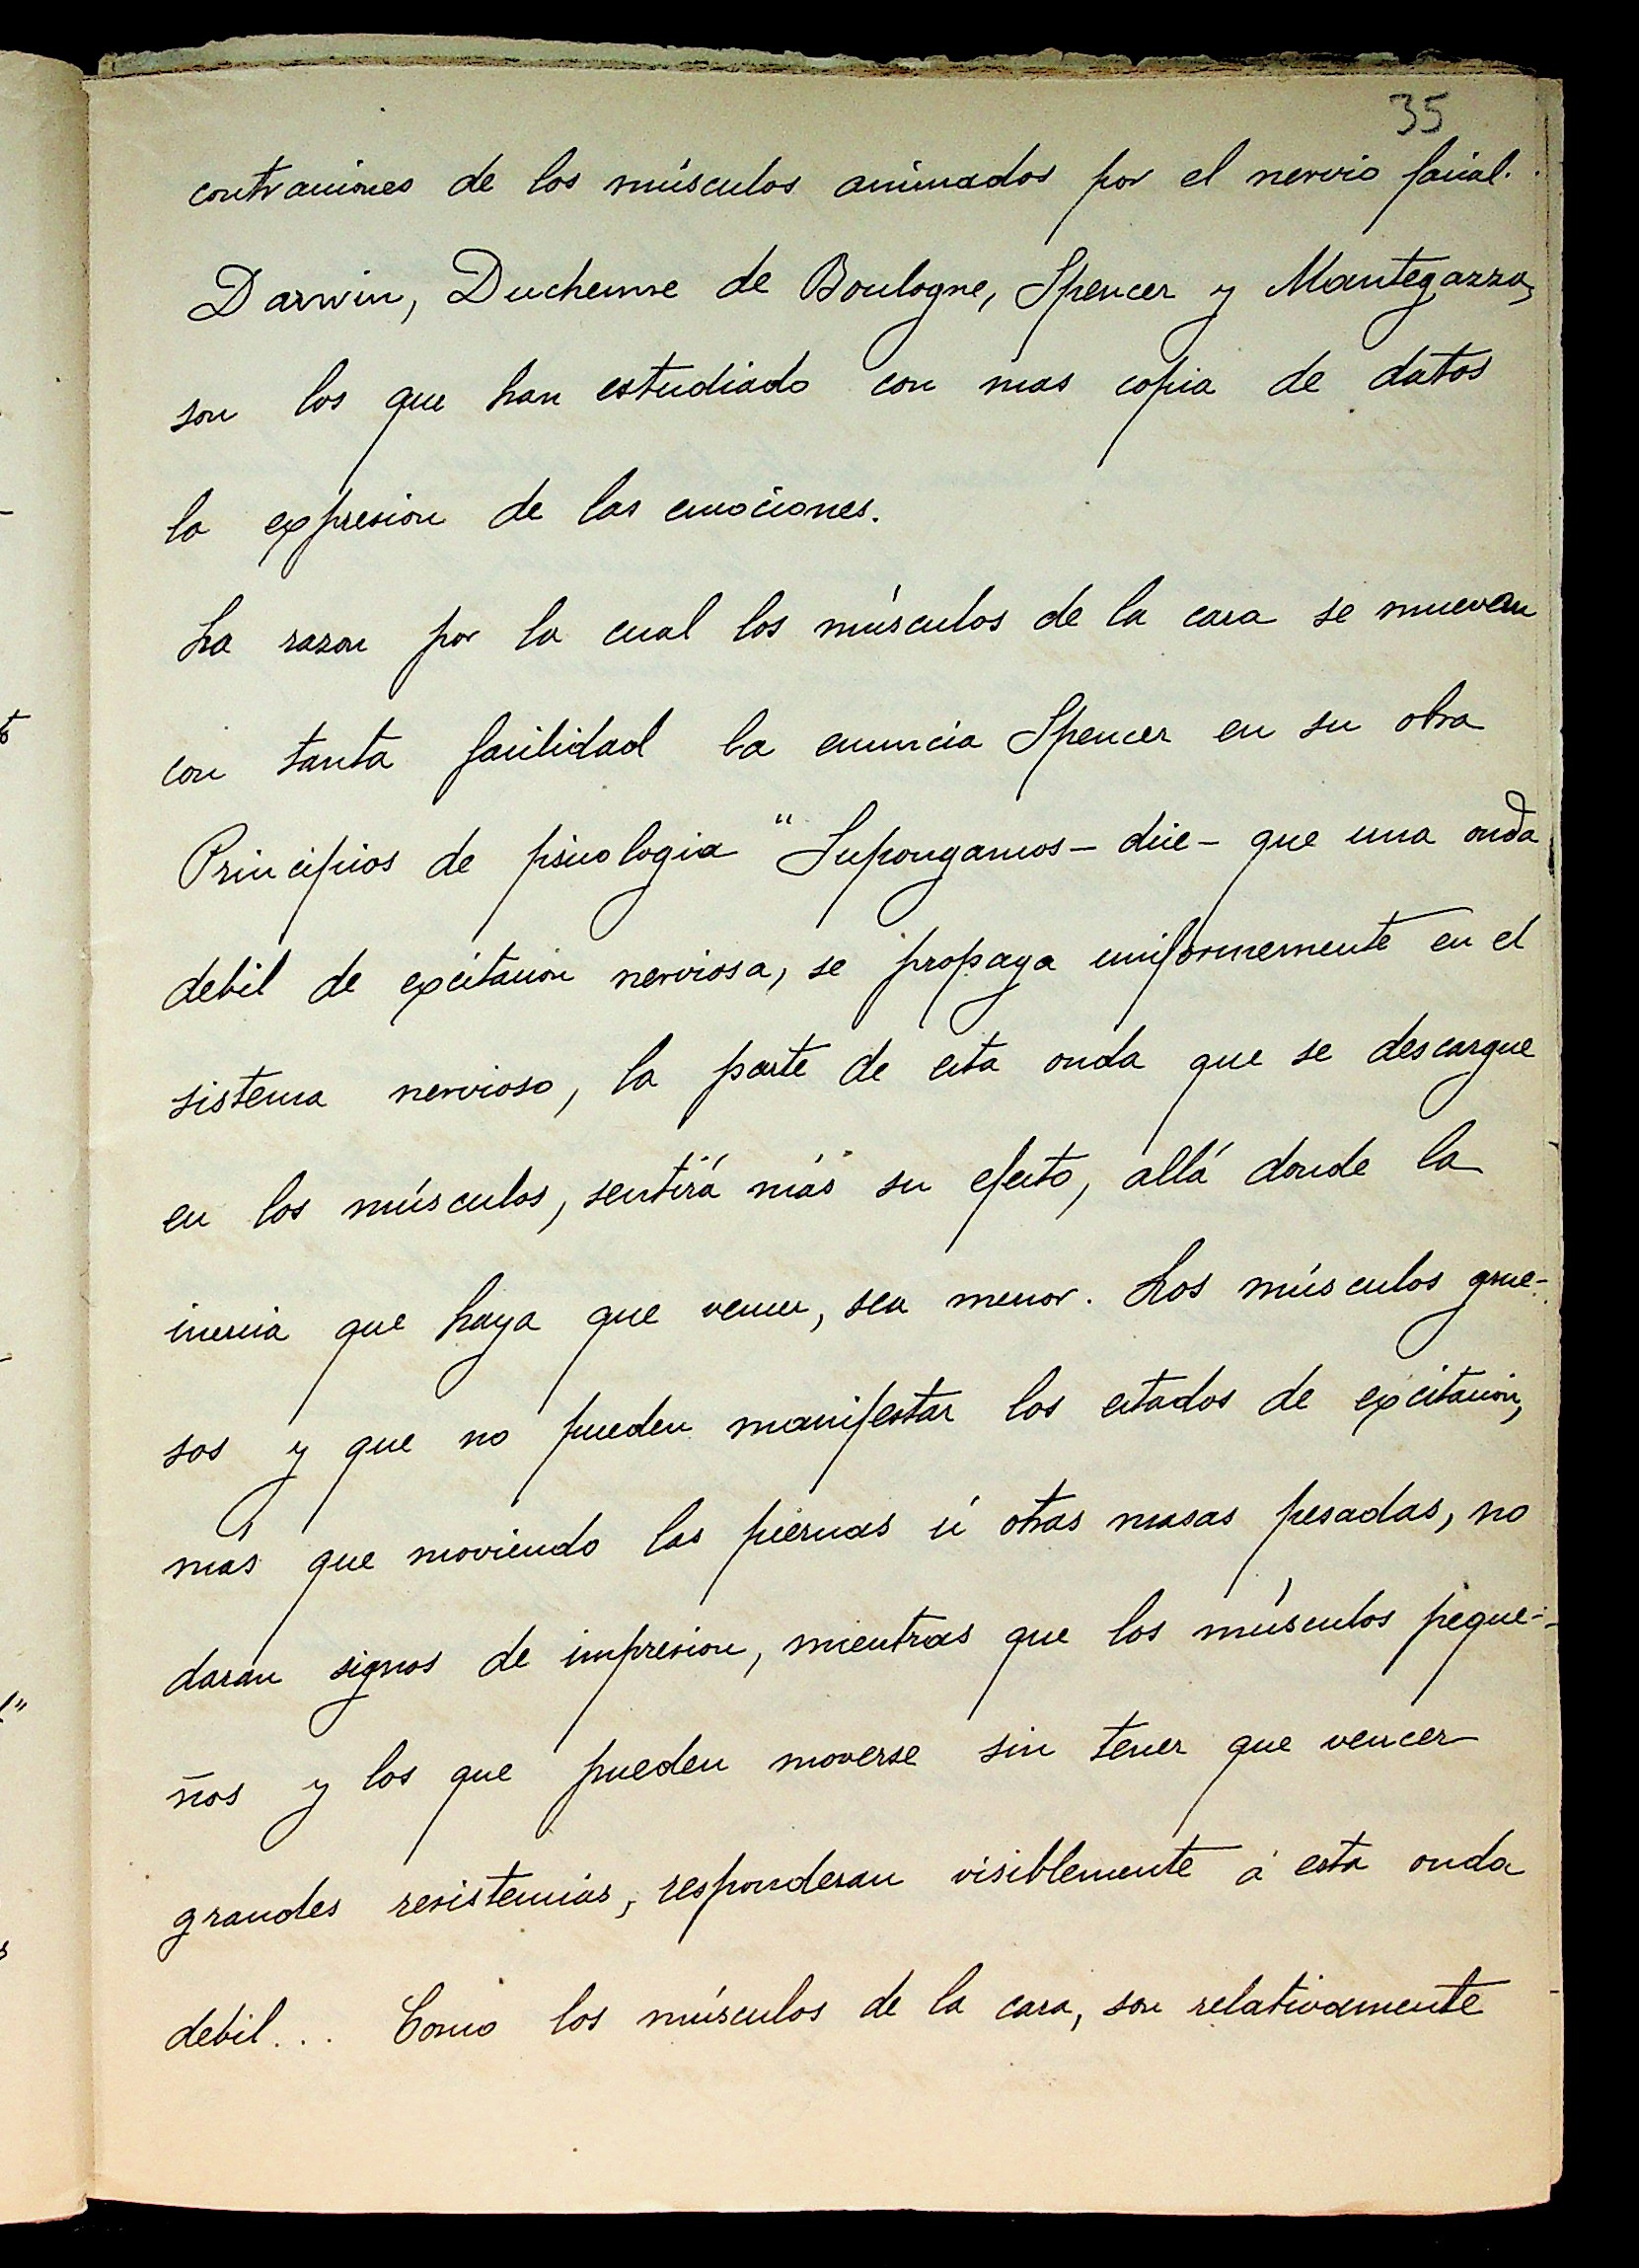 35
contracciones de los músculos animados por el nervio facial.
Darwin, Duchenne de Boulogne, Spencer y Mantegazza,
son los que han estudiado con mas copia de datos
la expresion de las emociones.
La razon por la cual los músculos de la cara se muevan
con tanta facilidad la enuncia Spencer en su obra
Principios de psicologia "Supongamos - dice - que una onda
debil de excitacion nerviosa, se propaga uniformemente en el
sistema nervioso, la parte de esta onda que se descargue
en los músculos, sentirá más su efecto, allá donde la
inercia que haya que vencer, sea menor. Los músculos grue-
sos y que no pueden manifestar los estados de excitación,
mas que moviendo las piernas ú otras masas pesadas, no
daran signos de impresion, mientras que los músculos peque-
ños y los que pueden moverse sin tener que vencer
grandes resistencias, responderan visiblemente á esta onda
debil... Como los músculos de la cara, son relativamente